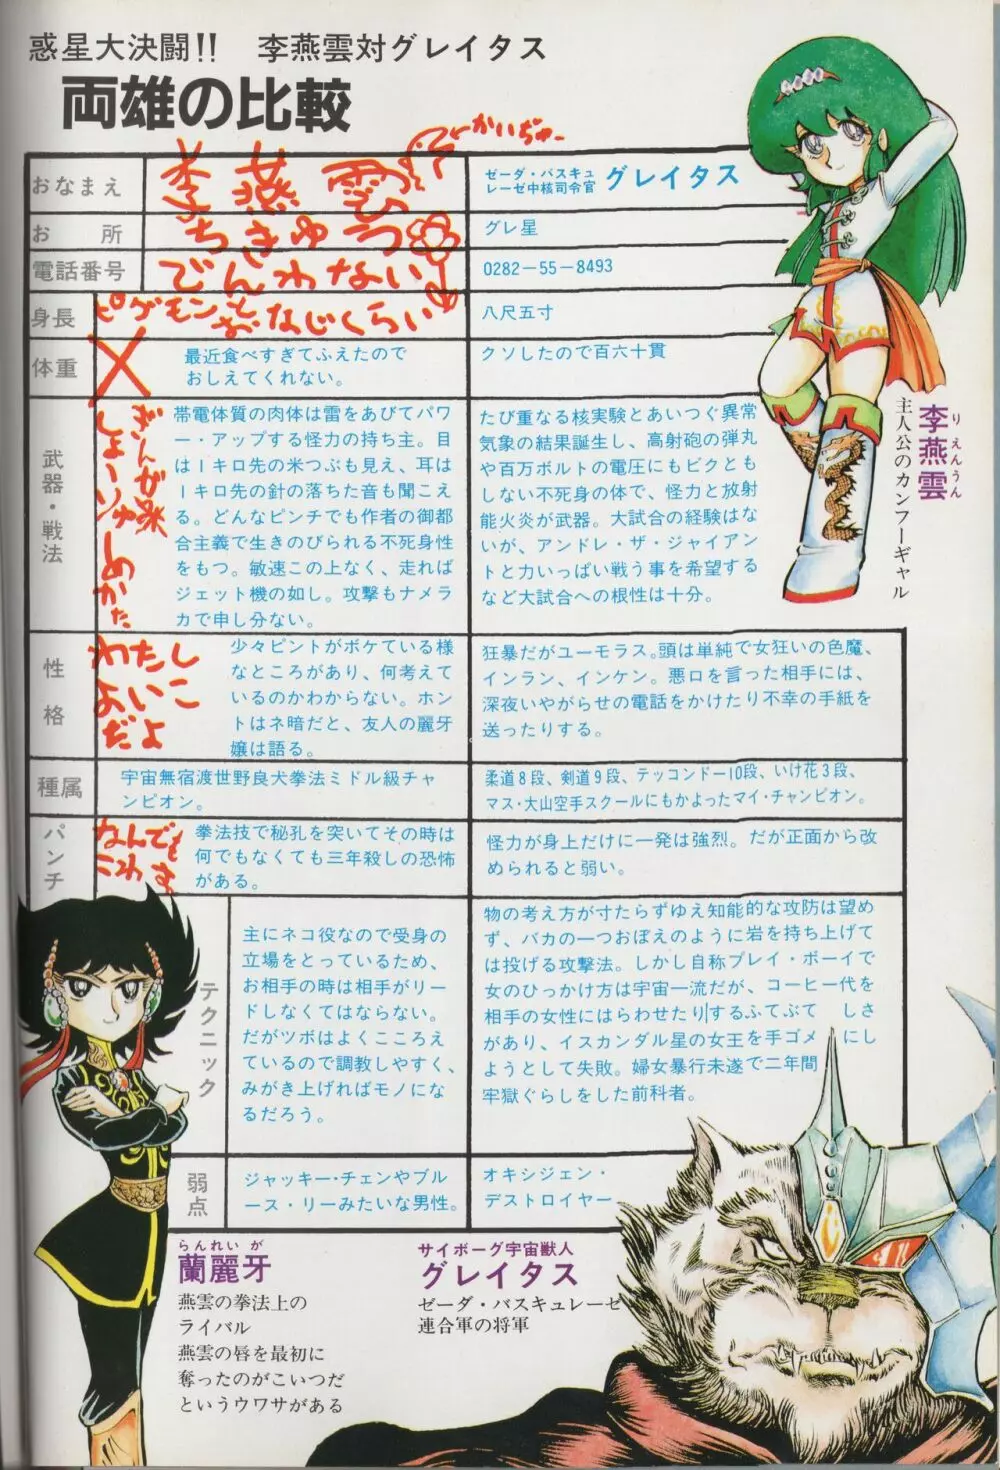 惑星大決闘!!　李燕雲対グレイタス
両雄の比較
おなまえ
李燕雲
←かいじゅー
ゼーダ・バスキュ
レーゼ中核司令官
グレイタス
お所
ちきゅう
グレ星
電話番号
でんわない
0282-55-8493
身長
ピグモンとおなじくらい
八尺五寸
体重
最近食べすぎてふえたので
おしえてくれない。
クソしたので百六十貫
武器・戦法
ぎんが系
しょーりゅーめかた
帯電体質の肉体は雷をあびてパワ
ー・アップする怪力の持ち主。目
は1キロ先の米つぶも見え、耳は
1キロ先の針の落ちた音も聞こえ
る。どんなピンチでも作者の御都
合主義で生きのびられる不死身性
をもつ。敏速この上なく、走れば
ジェット機の如し。攻撃もナメラ
カで申し分ない。
たび重なる核実験とあいつぐ異常
気象の結果誕生し、高射砲の弾丸
や百万ボルトの電圧にもビクとも
しない不死身の体で、怪力と放射
能火炎が武器。大試合の経験はな
いが、アンドレ・ザ・ジャイアン
トと力いっぱい戦う事を希望する
など大試合への根性は十分。
性格
わたし
よいこ
だよ
少々ピントがボケている様
なところがあり、何考えて
いるのかわからない。ホン
トはネ暗だと、友人の麗牙
嬢は語る。
狂暴だがユーモラス。頭は単純で女狂いの色魔、
インラン、インケン。悪口を言った相手には、
深夜いやがらせの電話をかけたり不幸の手紙を
送ったりする。
種属
宇宙無宿渡世野良犬拳法ミドル級チャ
ンピオン。
柔道8段、剣道9段、テッコンドー10段、いけ花3段、
マス・大山空手スクールにもかよったマイ・チャンピオン。
パンチ
なんでも
こわす
拳法技で秘孔を突いてその時は
何でもなくても三年殺しの恐怖
がある。
怪力が身上だけに一発は強烈。だが正面から改
められると弱い。
テクニック
主にネコ役なので受身の
立場をとっているため、
お相手の時は相手がリー
ドしなくてはならない。
だがツボはよくこころえ
ているので調教しやすく、
みがき上げればモノにな
るだろう。
物の考え方が寸たらずゆえ知能的な攻防は望め
ず、バカの一つおぼえのように岩を持ち上げて
は投げる攻撃法。しかし自称プレイ・ボーイで
女のひっかけ方は宇宙一流だが、コーヒー代を
相手の女性にはらわせたりするふてぶてしさ
があり、イスカンダル星の女王を手ゴメにし
ようとして失敗。婦女暴行未遂で二年間
牢獄ぐらしをした前科者。
弱点
ジャッキー・チェンやブル
ース・リーみたいな男性。
オキシジェン・
デストロイヤー
りえんうん
李燕雲
主人公のカンフーギャル
らんれいが
蘭麗牙
燕雲の拳法上の
ライバル
燕雲の唇を最初に
奪ったのがこいつだ
というウワサがある
サイボーグ宇宙獣人
グレイタス
ゼーダ・バスキュレーゼ
連合軍の将軍